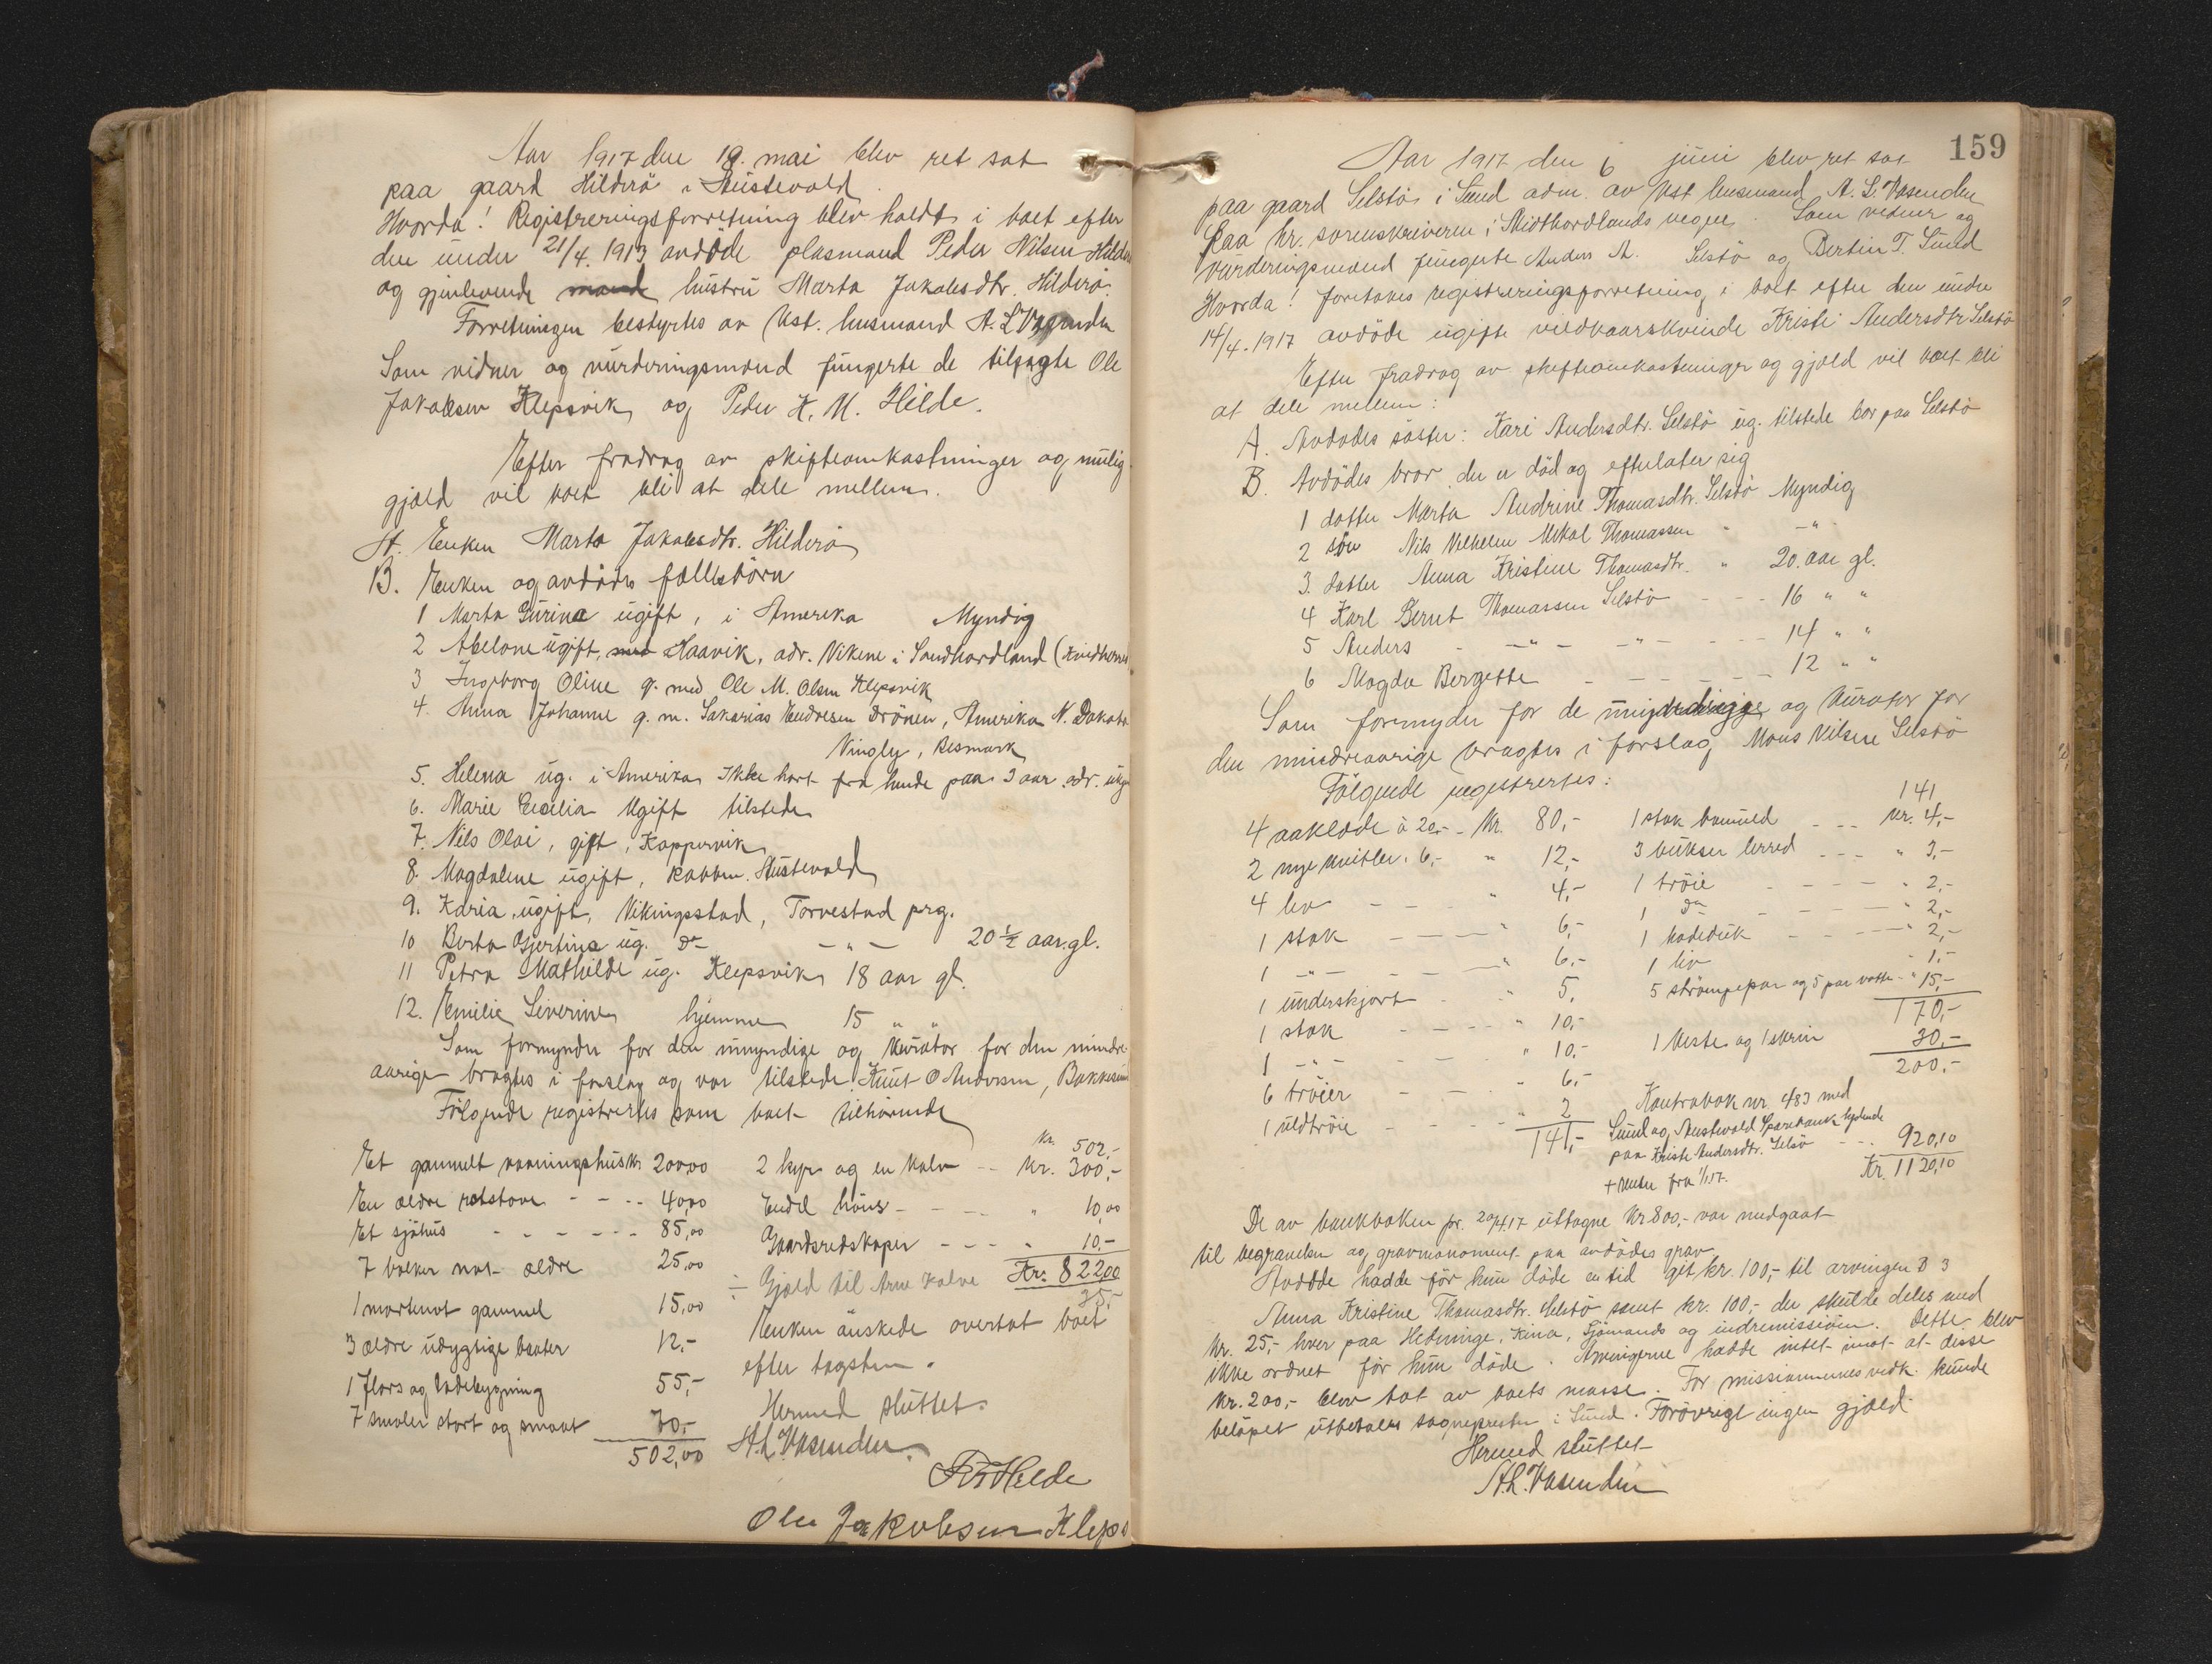 Aar 1917 den 19. mai blev ret sat
paa gaard Hilderö i Austevold
Hvorda! Registreringsforretning blev holdt i boet efter
den under 21/4. 1913 avdöde plasmand Peder Nilsen Hilder
og gjenlevende mand hustru Marta Jakobsdtr. Hilderö.
Forretningen bestyrtes av Kst. lensmand A. L. Vasenden
Som vidner og vurderingsmænd fungerte de tilsagte Ole
Jakobsen Klepsvik og Peder K. M. Hilde.
Efter fradrag av skifteomkostninger og mulig
gjæld vil boet bli at dele mellem.
A. Enken Marta Jakobsdtr. Hilderö
B. Enken og avdödes fællesbörn
1 Marta Gurina ugift, i Amerika Myndig
2 Abelone ugift, Haavik, adr. Vikene i Sondhordland
3 Ingeborg Oline g. med Ole M. Olsen Klepsvik
4. Anna Johanne g. m. Sakarias Endresen Drönen, Amerika N. Dakota
Vingly, Besmark
5. Helena ug. i Amerika Ikke hört fra hende paa 3 aar adr. ukj
6. Marie Cecilia Ugift tilstede
7. Nils Olai, gift, Kappervik
8. Magdalene ugift, Austevold
9. Karia, ugift, Vikingstad, Torvestad prg.
10 Berta Gjertina ug. do - " - 20 ½ aar.gl.
11 Petra Mathilde ug. Klepsvik 18 aar gl.
12. Emilie Severine hjemme 15 " "
Som formynder for den umyndige og kurator for den mindre-
aarige bragtes i forslag og var tilstede Knut O Andersen, Bakkesund
Fölgende registrertes som boet tilhörende
Et gammelt vaaningshus kr. 200,00
En ældre røkstove - - - 40,00
Et sjöhus - - - - - 85,00
7 bolker not ældre 25,00
1 mortnot gammel 15,00
3 ældre udygtige baater 12,-
1 flors og ladebygning 55,-
7 smaler stort og smaat 70,-
502,00
kr. 502,-
2 kyr og en kalv -- kr. 300,-
Endel höns - - - " 10,00
Gaardsredskaper - - - " 10,-
Kr. 822,00
÷ Gjæld til Arne Kalve 35,-
Enken önskede overtat boet
efter takstene.
Hermed sluttet.
A. L. Vasenden.
P K M Hilde
Ole Jakobsen Kleps
159
Aar 1917 den 6 juni blev ret sat
paa gaard Selstö i Sund adm. av Kst lensmand A. L. Vasenden
paa hr. sorenskriveren i Midthordlands vegne. Som vidner og
vurderingsmænd fungerte Anders A. Selstö og Bertin T. Sund
Hvorda! foretokes registreringsforretning i boet efter den under
14/4. 1917 avdöde ugifte vildkaarskvinde Kristi Andersdtr Selstö
Efter fradrag av skifteomkostninger og gjæld vil boet bli
at dele mellem:
A. Avdödes söster: Kari Andersdtr. Selstö ug. tilstede bor paa Selstö
B. Avdödes bror der er död og efterlater sig
1 datter Marta Andrine Thomasdtr. Selstö Myndig
2 sön Nils Vilhelm Mikal Thomassen " - " -
3. datter Anna Kristine Thomasdtr. " 20. aar gl.
4 Karl Bernt Thomassen Selstö - - - 16 " "
5 Anders - - " - - " - - - - 14 " "
6 Magda Bergette - - - - - - 12 " "
Som formynder for de umyndige og kurator for
den mindreaarige bragtes i forslag Mons Nilsen Selstö
Fölgende registrertes:
4 aaklæde à 20,- kr. 80,-
2 nye kvitler à 6,- " 12,-
4 liv - - - " 4,-
1 stak - - - " 6,-
1 - " - - - - " 6,-
1 underskjört - - " 5,
1 stak - - - - " 10,-
1 - " - - - - " 10,-
6 tröier - - - " 6,-
1 uldtröie - - - - " 2
141,-
141
1 stak bomuld - - - kr. 4,-
3 bukser lerred - - - " 3,-
1 tröie - - - - " 2,-
1 do - - - - " 2,-
1 hodeduk - - - - " 2,-
1 liv " 1,-
5 strömpepar og 5 par votte " 15,-
170,-
1 kiste og 1 skrin 30,-
200,-
Kontrabok nr. 483 med
Sund og Austevold Sparebank lydende
paa Kristi Andersdtr. Selsö - - - 920,10
+ renter fra 1/1 17. Kr. 1120,10
De av bankboken pr. 20/4 17 uttagne kr 800,- var medgaat
til begravelse og gravmonument paa avdödes grav.
Avdöde hadde för hun döde en tid git kr. 100,- til arvingen B 3
Anna Kristine Thomasdtr. Selstö samt kr. 100,- der skulde deles med
kr. 25,- hver paa Hedninge, Kina, Sjömands og indremissiöen. Dette blev
ikke ordnet för hun döde. Arvingerne hadde intet imot at disse
kr. 200,- blev tat av boets masse. For missionernes vedk. kunde
belöpet utbetales sogneprester i Sund. Forövrigt ingen gjæld.
Hermed sluttet
A. L. Vasenden